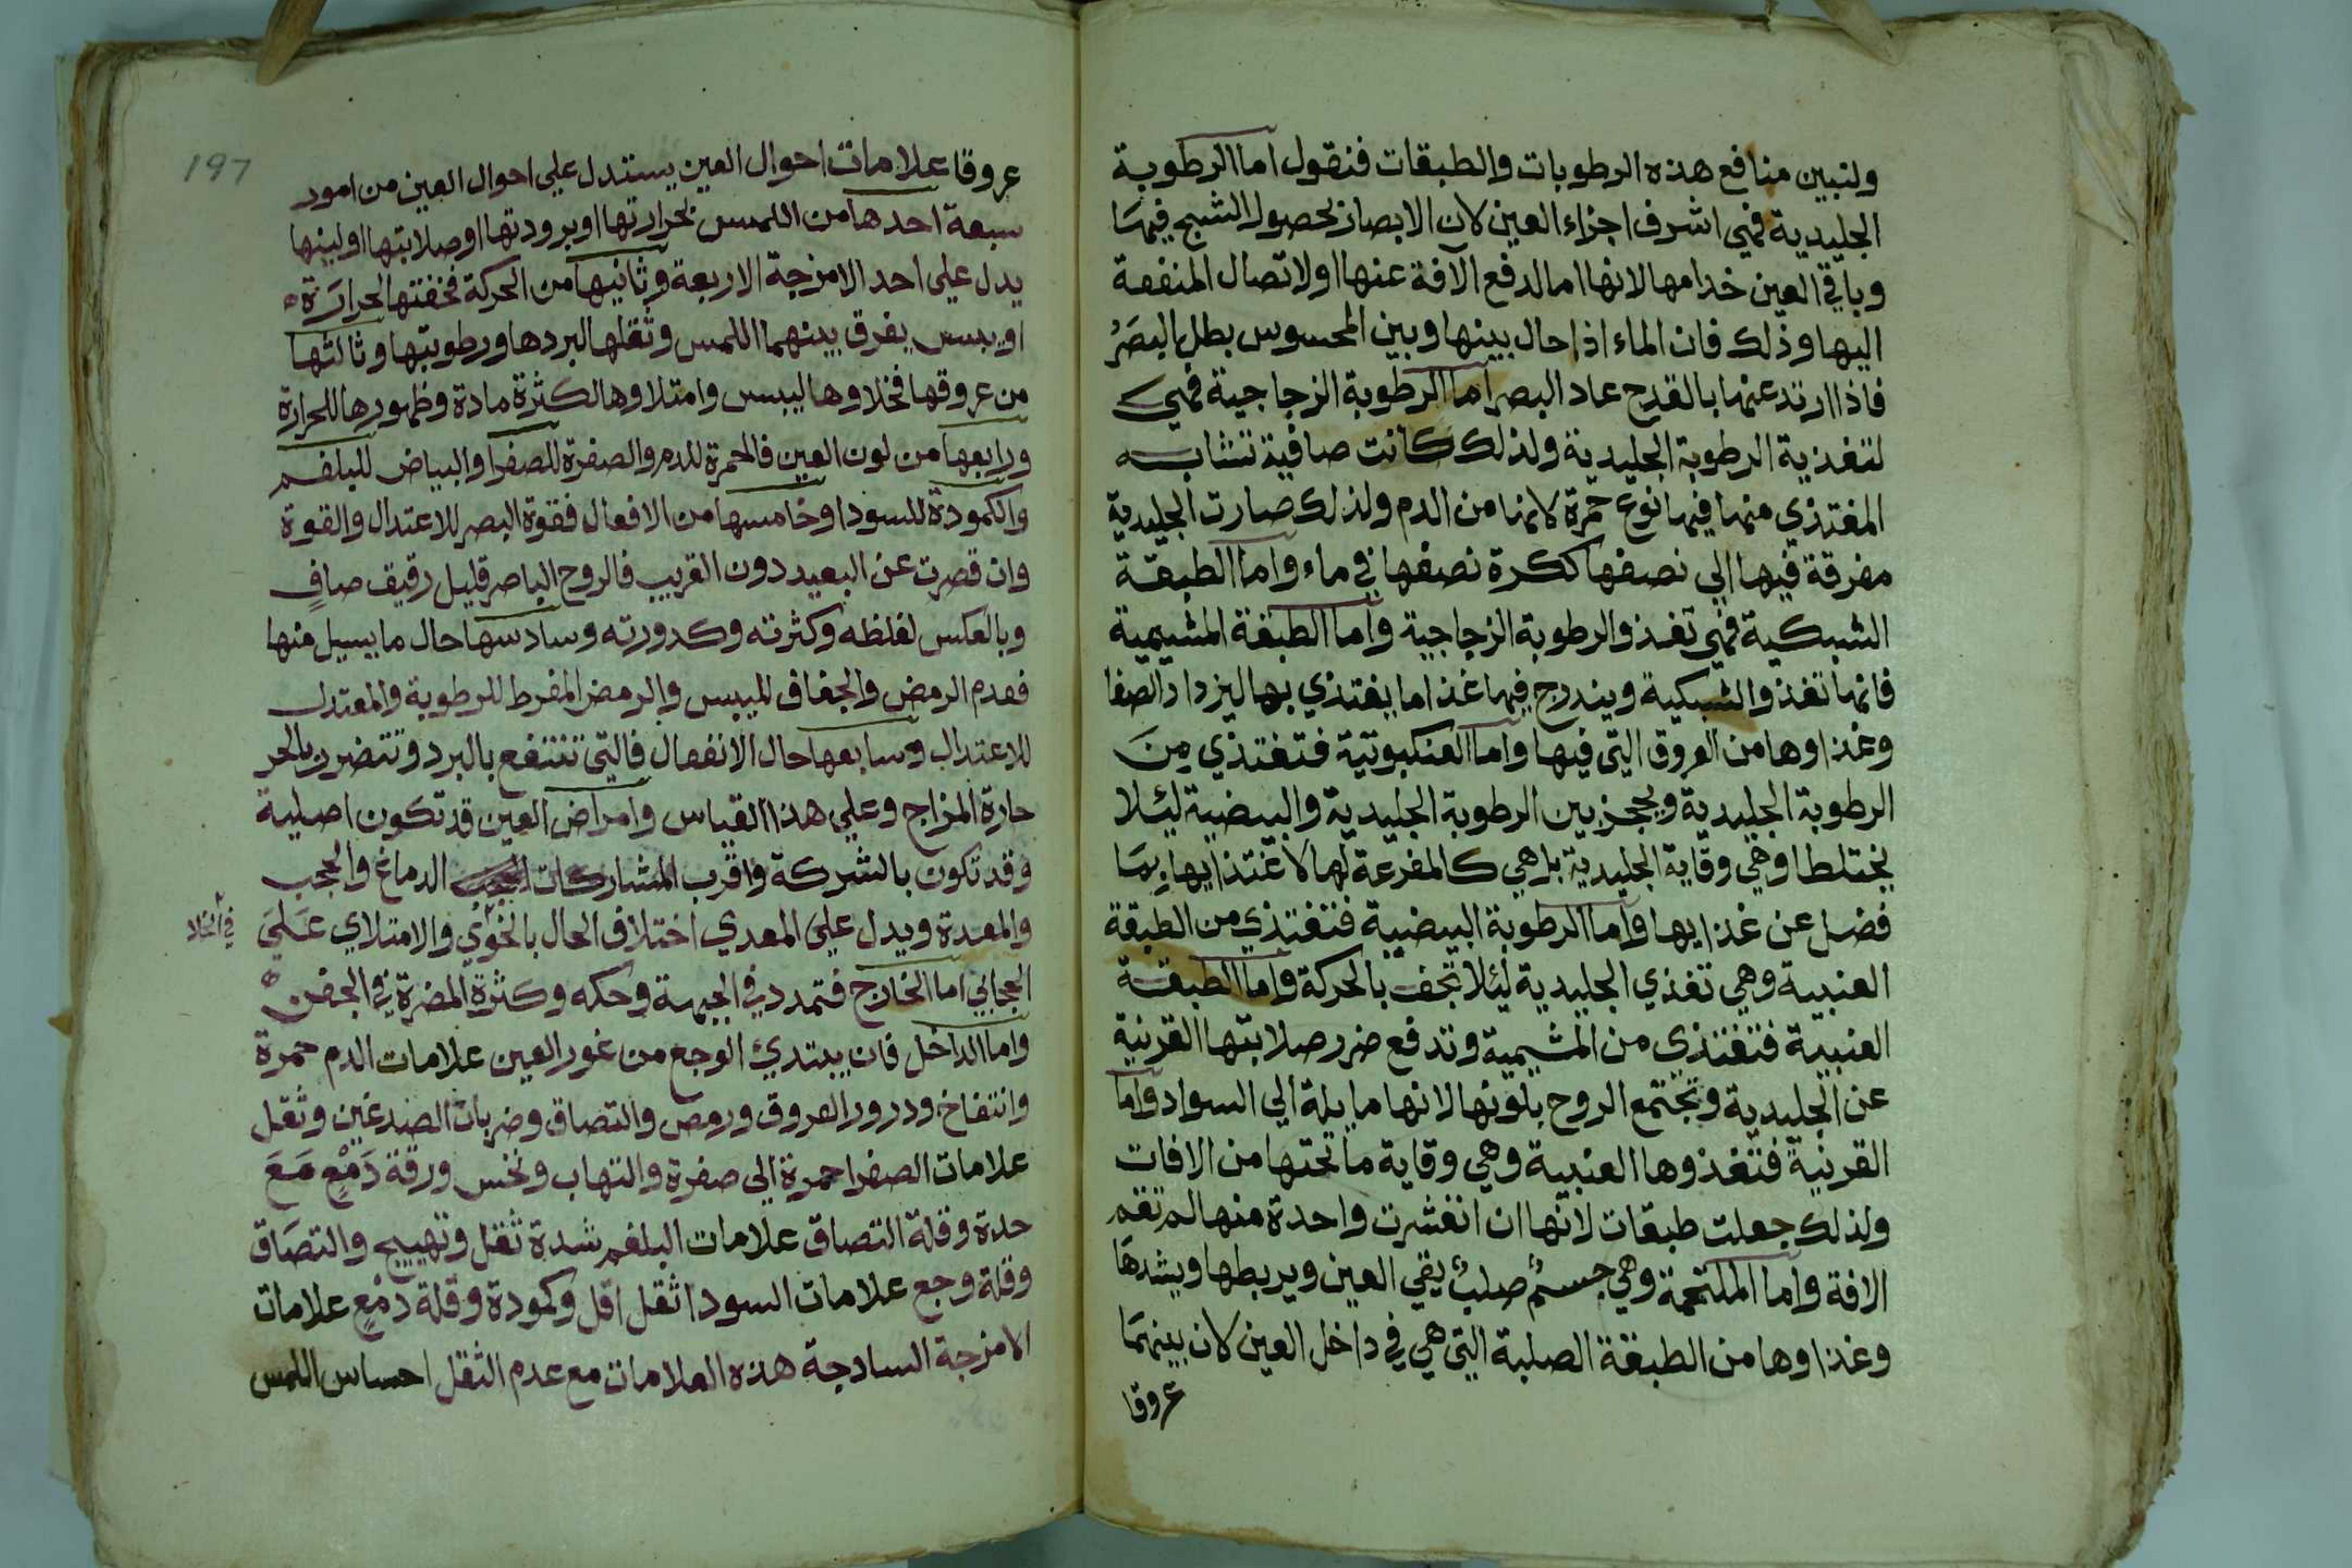 ولنبين منافع هذه الرطوبات والطبقات فنقول اما الرطوبة
الجليدية فهي اشرف اجزاء العين لان الابصار بحصول الشبح فيها
وباقي العين خدامها لانها اما لدفع الآفة عنها او لاتصال المنفعة
اليها وذلك فان الماء اذا حال بينها وبين المحسوس بطل البصر
فاذا ارتد عنها بالقدح عاد البصر اما الرطوبة الزجاجية فهي
لتغذية الرطوبة الجليدية ولذلك كانت صافية تشابه
المغتذي منها فيها نوع حمرة لانها من الدم ولذلك صارت الجليدية
مغرقة فيها الي نصفها ككرة نصفها في ماء واما الطبقة
الشبكية فهي تغذو الرطوبة الزجاجية واما الطبقة المشيمية
فانها تغذو الشبكية ويندرج فيها غذا ما يغتذي بها ليزداد الصفا
وغذاوها من العروق التي فيها واما العنكبوتية فتغتذي مِنَ
الرطوبة الجليدية ويحجز بين الرطوبة الجليدية والبيضية ليئلا
يختلطا وهي وقاية الجليدية بل هي كالمفرعة لها لاغتذايها بما
فضل عن غذايها واما الرطوبة البيضية فتغتذي من الطبقة
العنبية وهي تغذي الجليدية ليئلا تجف بالحركة واما الطبقة
العنبية فتغتذي من المشيمية وتدفع ضرر صلابتها القرنية
عن الجليدية وتجتمع الروح بلونها لانها مايلة الي السواد واما
القرنية فتغذوها العنبية وهي وقاية ما تحتها من الافات
ولذلك جعلت طبقات لانها ان انقشرت واحدة منها لم تعم
الافة واما الملتحمة وهي جسمٌ صلبٌ يقي العين ويربطها ويشدها
وغذاوها من الطبقة الصلبة التي هي في داخل العين لان بينهما
عروقا
197
عروقا علامات احوال العين يستدل علي احوال العين من امور
سبعة احدها من اللمس بحرارتها او برودتها او صلابتها او لينها
يدل علي احد الامزجة الاربعة وثانيها من الحركة فخفتها لحرارة
او يبس يفرق بينهما اللمس وثقلها لبردها ورطوبتها وثالثها
من عروقها فخلاوها ليبس وامتلاوها لكثرة مادة وظهورها للحرارة
ورابعها من لون العين فالحمرة للدم والصفرة للصفرا والبياض للبلغم
والكمودة للسودا وخامسها من الافعال فقوة البصر للاعتدال والقوة
وان قصرت عن البعيد دون القريب فالروح الباصر قليل رقيق صافٍ
وبالعكس لغلظه وكثرته وكدورته وسادسها حال ما يسيل منها
فعدم الرمص والجفاف لليبس والرمص المفرط للرطوبة والمعتدل
للاعتدال وسابعها حال الانفعال فالتي تنتفع بالبرد وتتضرر بالحر
حارة المزاج وعلي هذا القياس وامراض العين قد تكون اصلية
وقد تكون بالشركة واقرب المشاركات الدماغ والحجب
والمعدة ويدل علي المعدي اختلاف الحال بالخوي والامتلاي عَلَي
في الخلا
الحجابي اما الخارج فتمدد في الجبهة وحكه وكثرة المضرة في الجفن
واما الداخل فان يبتدئ الوجع من غور العين علامات الدم حمرة
وانتفاخ ودرور العروق ورمص والتصاق وضربان الصدغين وثقل
علامات الصفرا حمرة الي صفرة والتهاب ونخس ورقة دَمْعٍ مَعَ
حدة وقلة التصاق علامات البلغم شدة ثقل وتهييج والتصاق
وقلة وجع علامات السودا ثقل اقل وكمودة وقلة دمعٍ علامات
الامزجة السادجة هذه العلامات مع عدم الثقل احساس اللمس